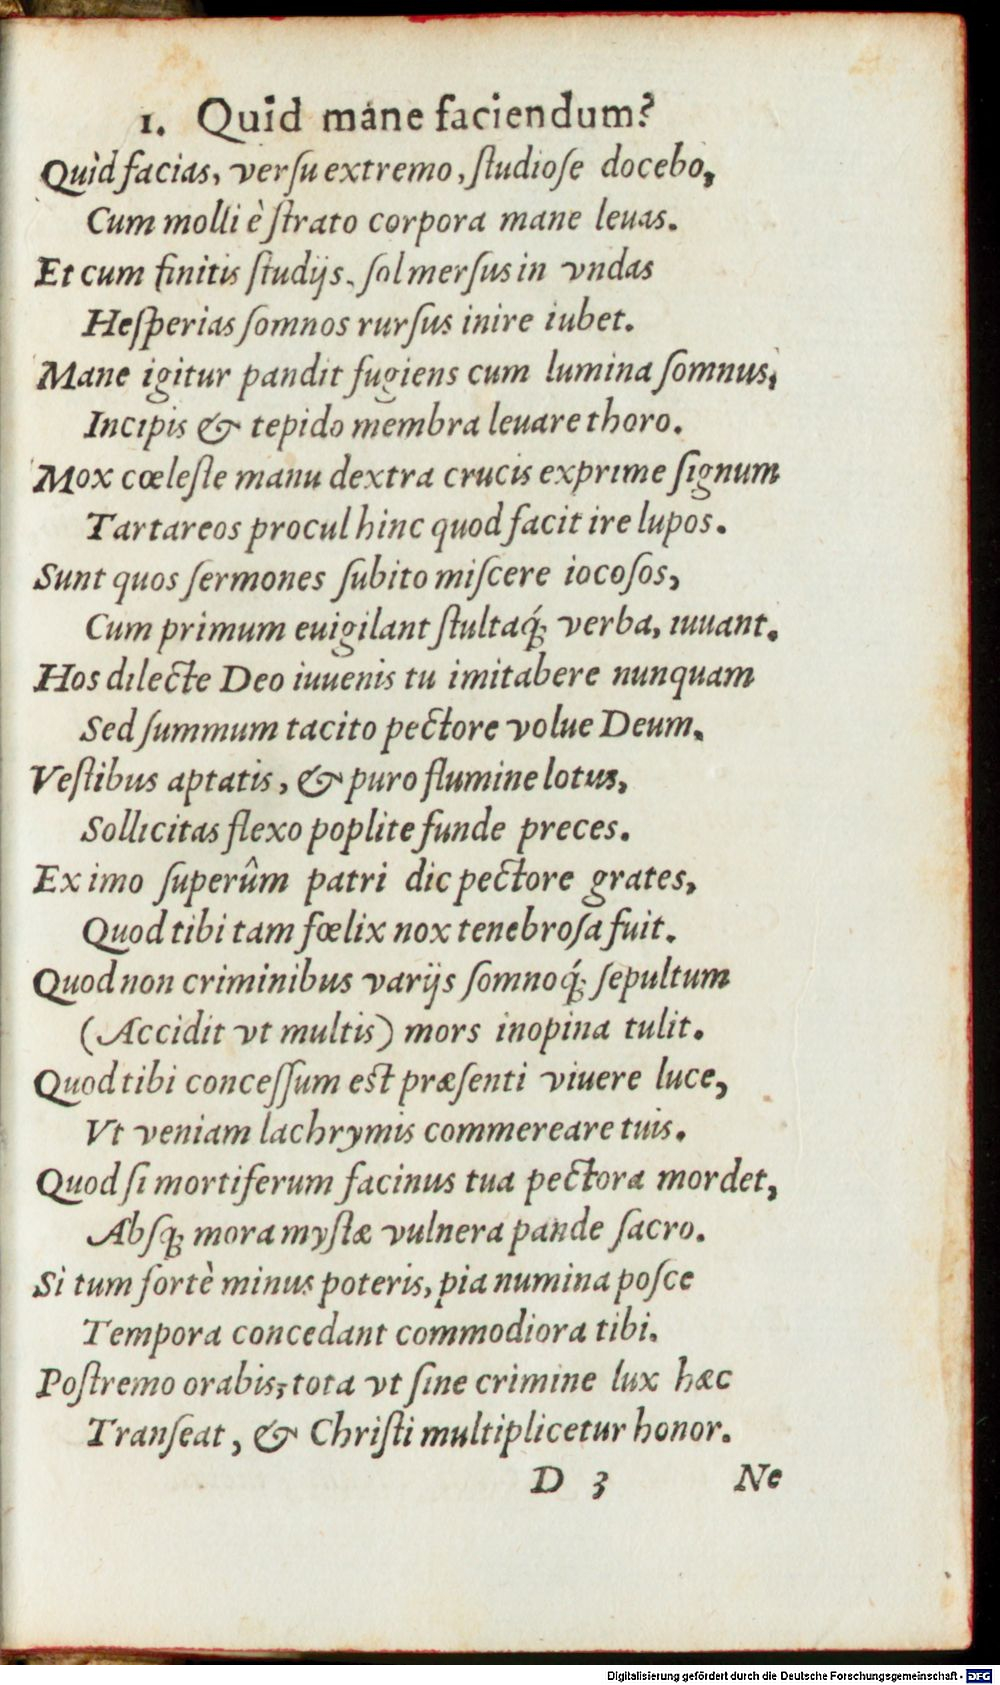 1. Quid mane faciendum?
Quid facias, versu extremo, ſtudioſe docebo,
Cum molli è ſtrato corpora mane leuas.
Et cum finitis ſtudijs, ſol merſus in vndas
Heſperias ſomnos rurſus inire iubet.
Mane igitur pandit fugiens cum lumina ſomnus,
Incipis & tepido membra leuare thoro.
Mox cœleſte manu dextra crucis exprime ſignum
Tartareos procul hinc quod facit ire lupos.
Sunt quos ſermones ſubito miſcere iocoſos,
Cum primum euigilant ſtultaq́; verba, iuuant.
Hos dilecte Deo iuuenis tu imitabere nunquam
Sed ſummum tacito pectore volue Deum.
Veſtibus aptatis, & puro flumine lotus,
Sollicitas flexo poplite funde preces.
Ex imo ſuperûm patri dic pectore grates,
Quod tibi tam fœlix nox tenebroſa fuit.
Quod non criminibus varijs ſomnoq́; ſepultum
(Accidit vt multis) mors inopina tulit.
Quod tibi conceſſum eſt præſenti viuere luce,
Vt veniam lachrymis commereare tuis.
Quod ſi mortiferum facinus tua pectora mordet,
Abſq; mora myſtæ vulnera pande ſacro.
Si tum fortè minus poteris, pia numina poſce
Tempora concedant commodiora tibi.
Poſtremo orabis, tota vt ſine crimine lux hæc
Tranſeat, & Chriſti multiplicetur honor.
D 3 Ne
Digitalisierung gefördert durch die Deutsche Forschungsgemeinschaft - DFG